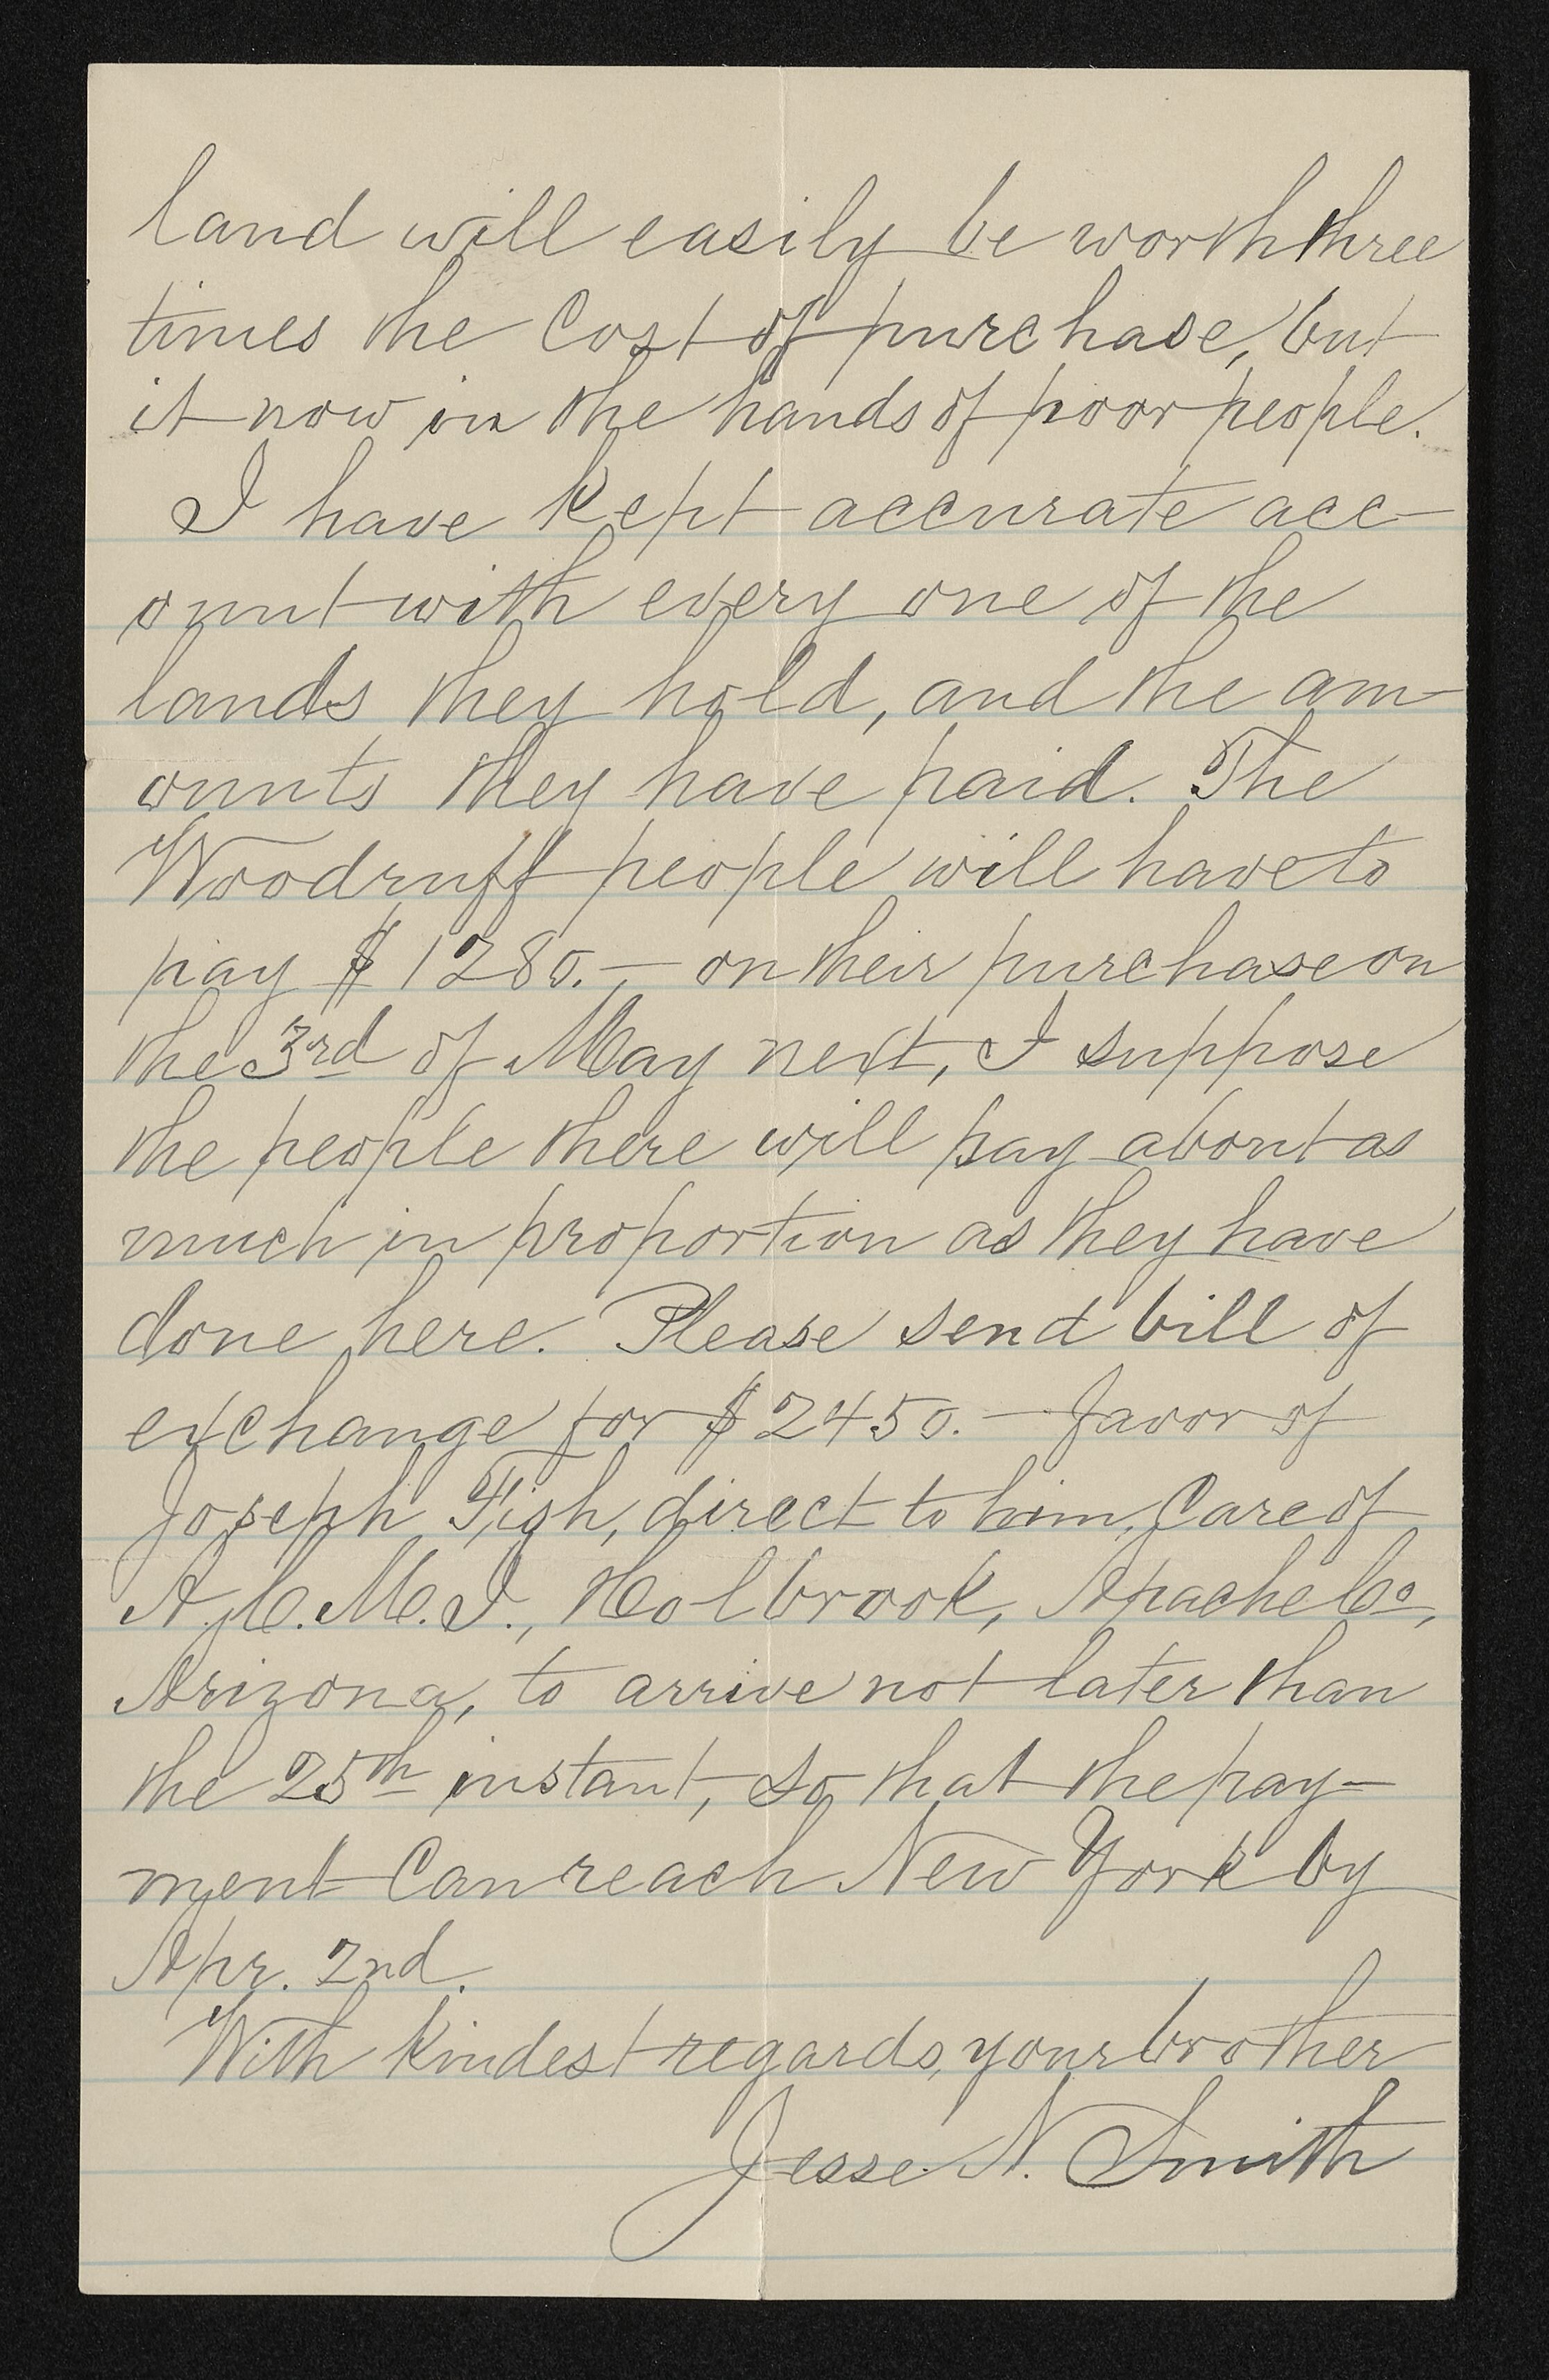 land will easily be worth three
times the Cost of purchase, but
it now in the hands of poor people.
I have Kept accurate acc-
ount with every one of the
lands they hold, and the am-
ounts they have paid. The
Woodruff people will have to
pay $1280.- on their purchase on
the 3rd of May next, I suppose
the people there will pay about as
much in proportion as they have
done here. Please send bill of
exchange for $2450.- favor of
Joseph Fish, direct to him, Care of
A.C.M.I., Holbrook, Apache Co,
Arizona, to arrive not later than
the 25th instant, so that the pay-
ment Can reach New York by
Apr. 2nd.
With Kindest regards, your brother
Jesse N. Smith